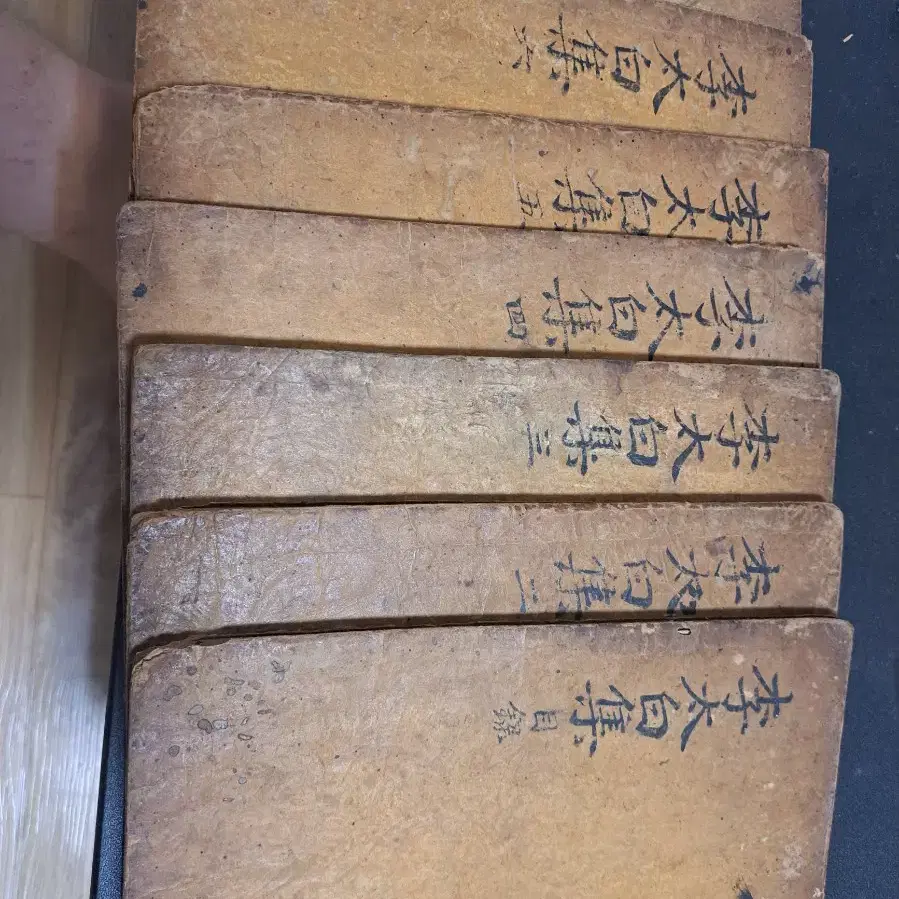 李太白集 六
李太白集 五
李太白集 四
李太白集 三
李太白集 二
李太白集 目錄